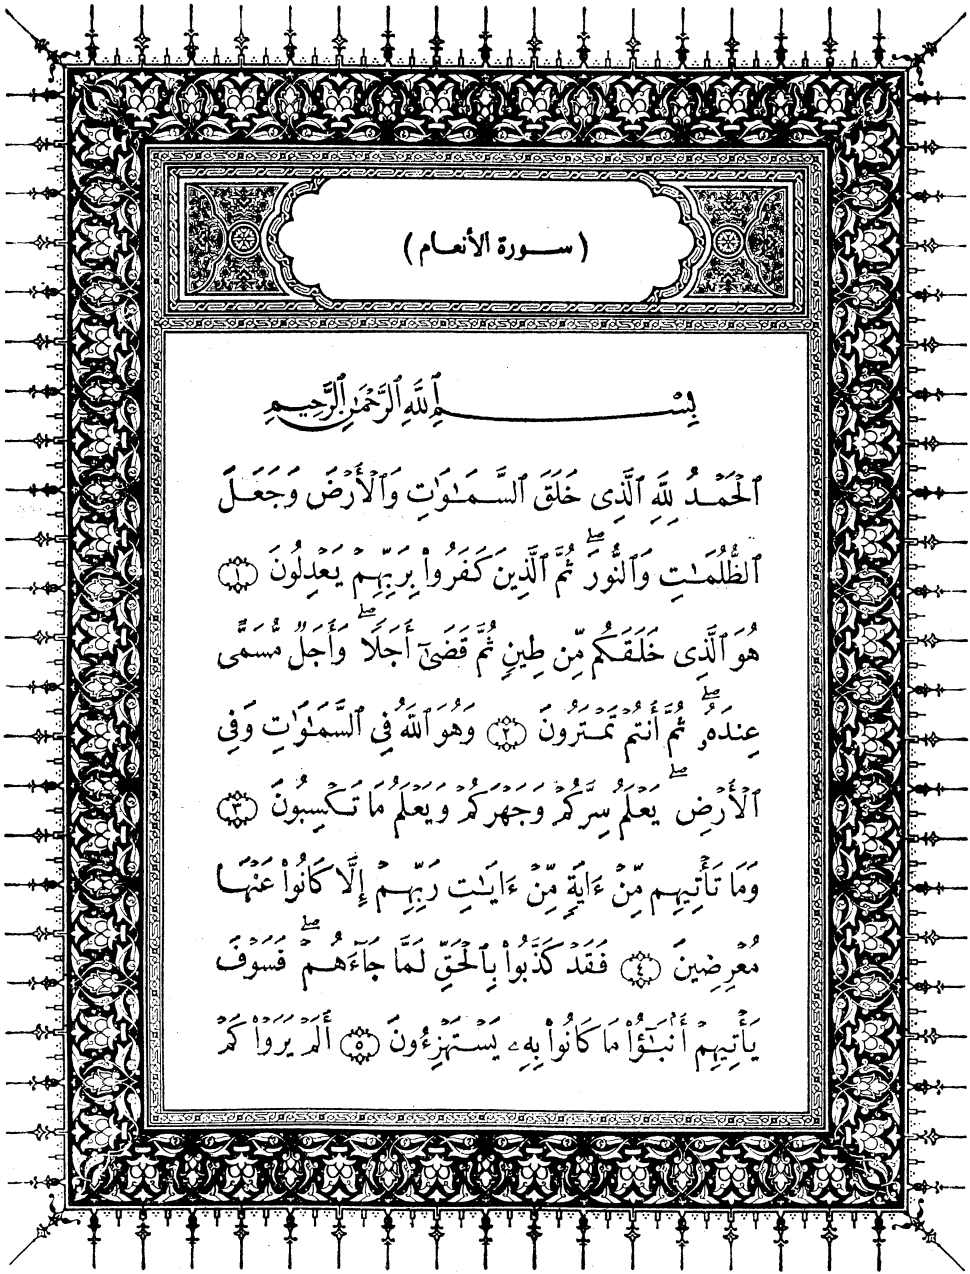 ( ســورة الأنعـام )
بِسْــــــمِ ٱللَّهِ ٱلرَّحْمَٰنِ ٱلرَّحِيمِ
ٱلْحَمْدُ لِلَّهِ ٱلَّذِى خَلَقَ ٱلسَّمَٰوَٰتِ وَٱلْأَرْضَ وَجَعَلَ
ٱلظُّلُمَٰتِ وَٱلنُّورَ ۖ ثُمَّ ٱلَّذِينَ كَفَرُوا۟ بِرَبِّهِمْ يَعْدِلُونَ ١
هُوَ ٱلَّذِى خَلَقَكُم مِّن طِينٍ ثُمَّ قَضَىٰٓ أَجَلًا ۖ وَأَجَلٌ مُّسَمًّى
عِندَهُۥ ۖ ثُمَّ أَنتُمْ تَمْتَرُونَ ٢ وَهُوَ ٱللَّهُ فِى ٱلسَّمَٰوَٰتِ وَفِى
ٱلْأَرْضِ ۖ يَعْلَمُ سِرَّكُمْ وَجَهْرَكُمْ وَيَعْلَمُ مَا تَكْسِبُونَ ٣
وَمَا تَأْتِيهِم مِّنْ ءَايَةٍ مِّنْ ءَايَٰتِ رَبِّهِمْ إِلَّا كَانُوا۟ عَنْهَا
مُعْرِضِينَ ٤ فَقَدْ كَذَّبُوا۟ بِٱلْحَقِّ لَمَّا جَآءَهُمْ ۖ فَسَوْفَ
يَأْتِيهِمْ أَنۢبَٰٓؤُا۟ مَا كَانُوا۟ بِهِۦ يَسْتَهْزِءُونَ ٥ أَلَمْ يَرَوْا۟ كَمْ